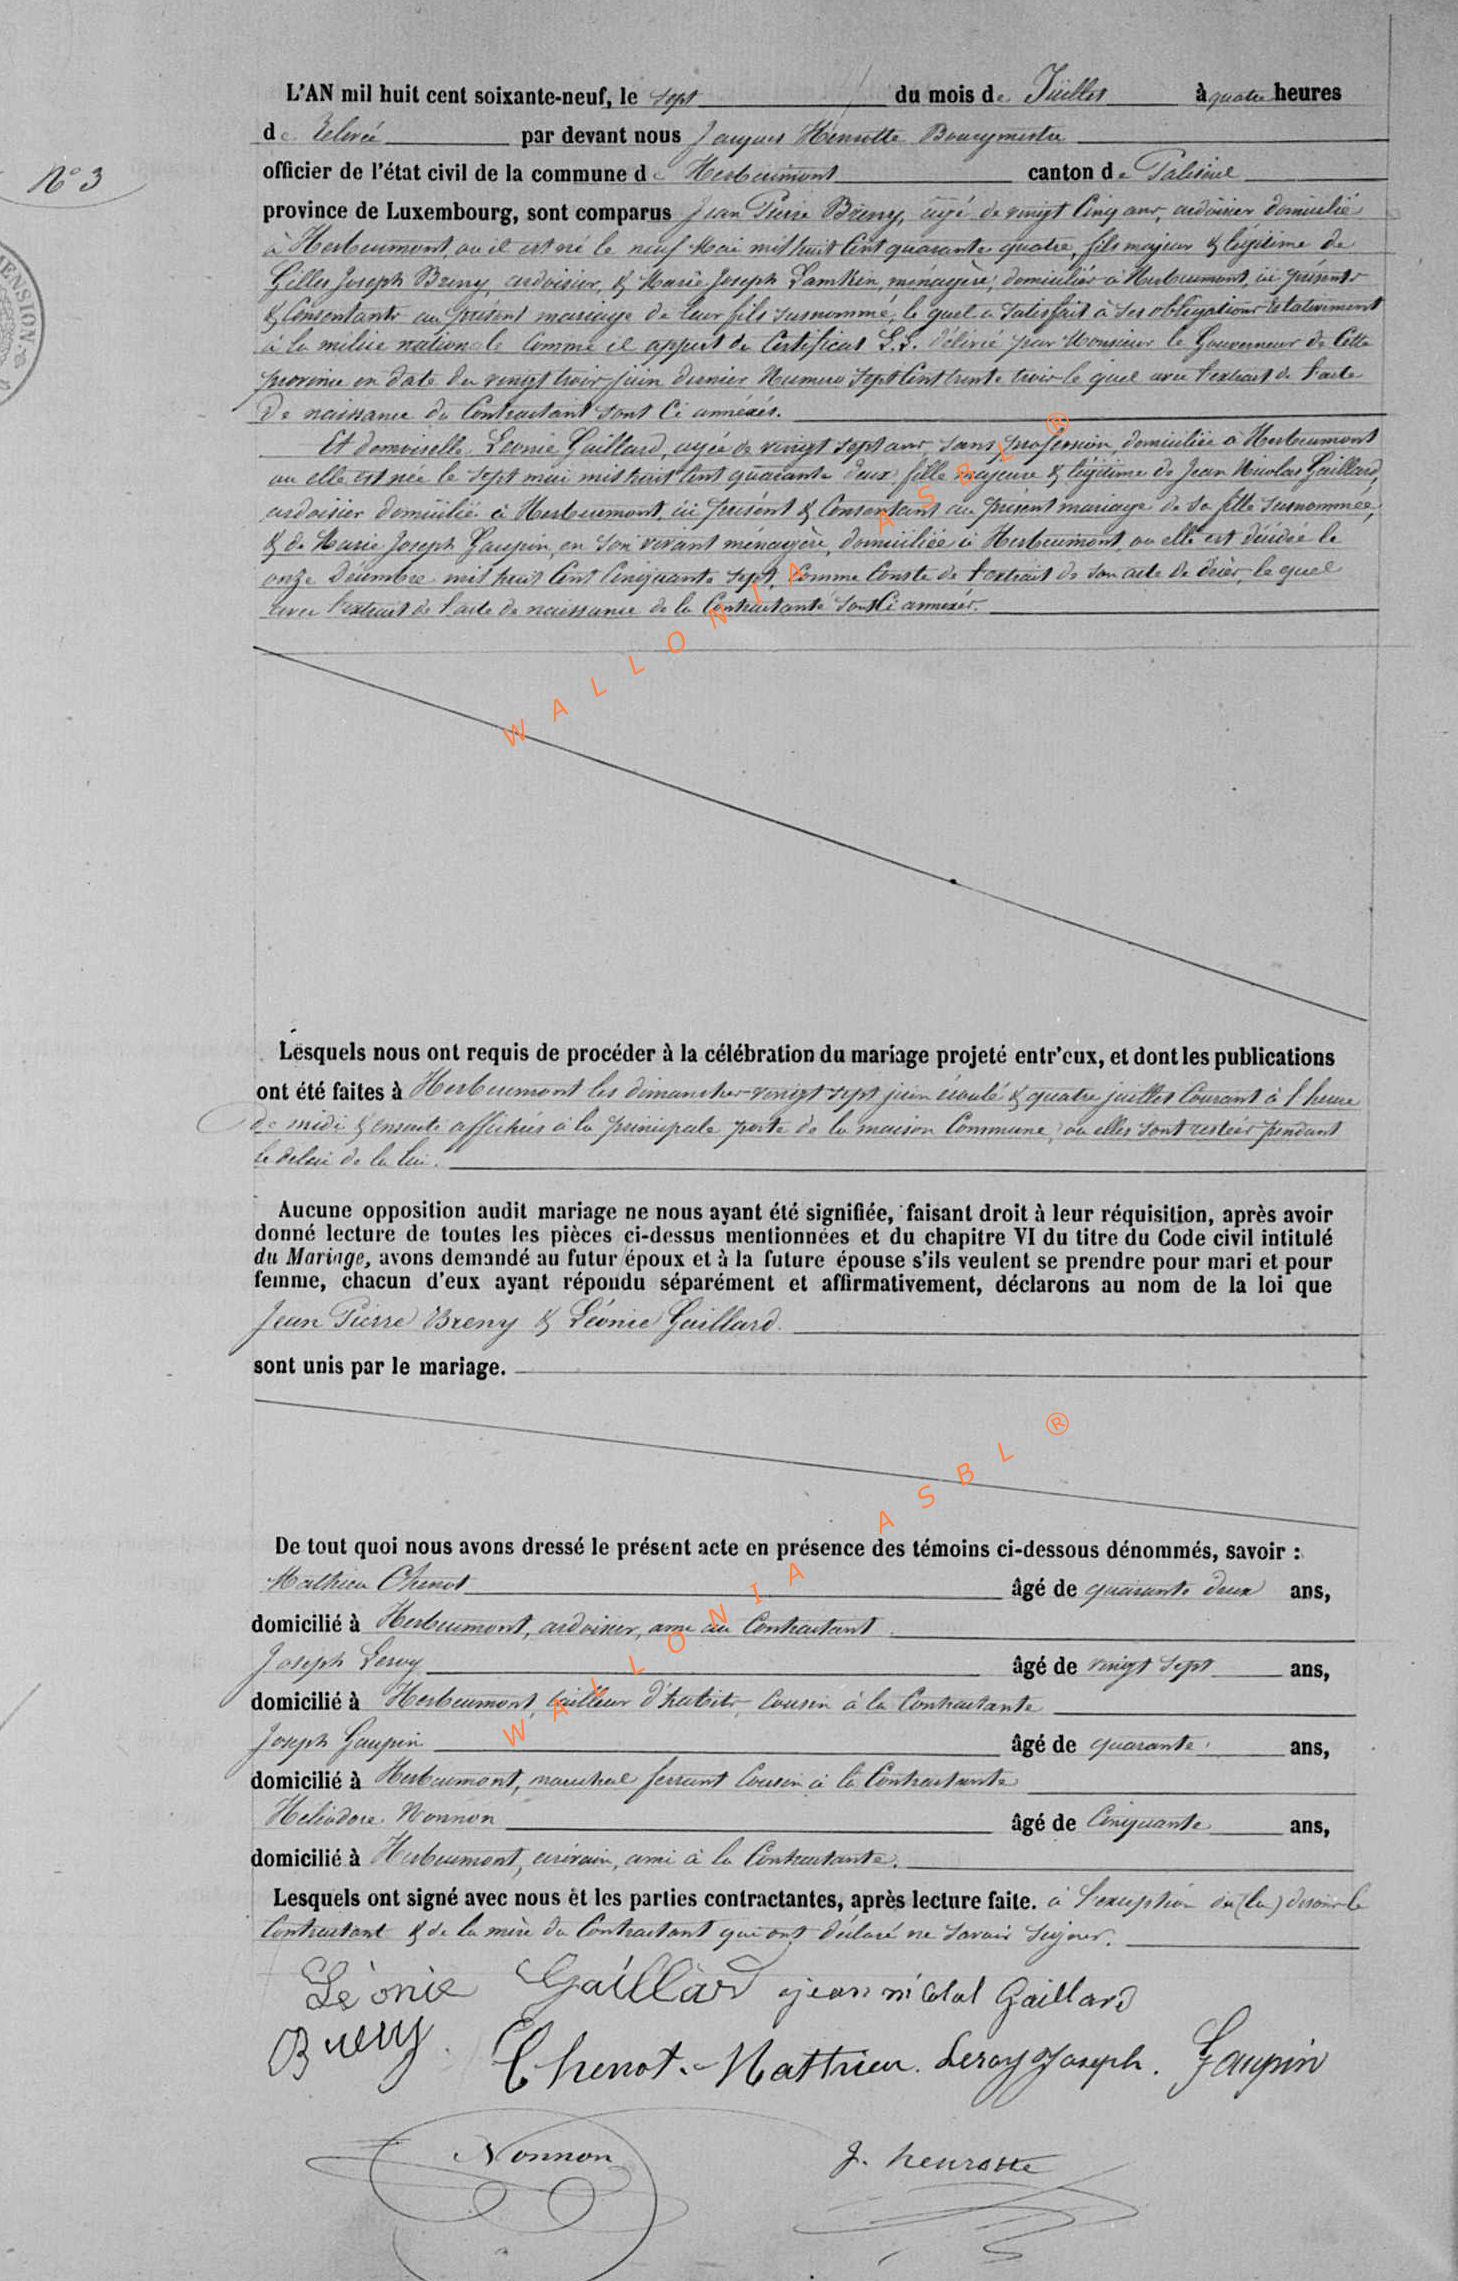 L'AN mil huit cent soixante-neuf, le sept du mois de Juillet à quatre heures
de Relevée par devant nous Jacques Henrotte Bourgmestre
N° 3
officier de l'état civil de la commune de Herbeumont canton de Paliseul
province de Luxembourg, sont comparus Jean Pierre Breny, âgé de vingt Cinq ans, ardoisier domicilié
à Herbeumont, où il est né le neuf Mai mil huit Cent quarante quatre, fils majeur & légitime de
Gilles Joseph Breny, ardoisier, & Marie Joseph Lamkin, ménagère, domiciliés à Herbeumont, ici présents
& Consentants au présent mariage de leur fils susnommé, le quel a satisfait à ses obligations relativement
à la milice nationale Comme il appert du Certificat L.L. délivré par Monsieur le Gouverneur de Cette
province en date du vingt trois juin dernier Numero Sept Cent trente trois le quel avec l'extrait de l'acte
De naissance du Contractant sont Ci annéxés.
Et demoiselle Leonie Gaillard, agée de vingt sept ans, sans profession, domiciliée à Herbeumont
ou elle est née le sept mai mil huit Cent quarante deux, fille majeure & légitime de Jean Nicolas Gaillard,
ardoisier domicilié à Herbeumont, ici présent & Consentant au présent mariage de sa fille susnommée,
& de Marie Joseph Gaupin, en son vivant ménagère, domiciliée à Herbeumont, ou elle est décédée le
onze Décembre mil huit Cent Cinquante sept, Comme Conste de l'extrait de son acte de décès, le quel
avec l'extrait de l'acte de naissance de la Contractante sont Ci annexés.
WALLONIA ASBL ®
Lesquels nous ont requis de procéder à la célébration du mariage projeté entr'eux, et dont les publications
ont été faites à Herbeumont les dimanches vingt sept juin écoulé & quatre juillet Courant à l'heure
de midi & ensuite affichées à la principale porte de la maison Commune, ou elles sont restées pendant
le délai de la loi.
Aucune opposition audit mariage ne nous ayant été signifiée, faisant droit à leur réquisition, après avoir
donné lecture de toutes les pièces ci-dessus mentionnées et du chapitre VI du titre du Code civil intitulé
du Mariage, avons demandé au futur époux et à la future épouse s'ils veulent se prendre pour mari et pour
femme, chacun d'eux ayant répondu séparément et affirmativement, déclarons au nom de la loi que
Jean Pierre Breny & Léonie Gaillard.
sont unis par le mariage.
WALLONIA ASBL ®
De tout quoi nous avons dressé le présent acte en présence des témoins ci-dessous dénommés, savoir :
Mathieu Chenot âgé de quarante deux ans,
domicilié à Herbeumont, ardoisier, ami au Contractant
Joseph Leroy âgé de vingt sept ans,
domicilié à Herbeumont, tailleur d'habits, Cousin à la Contractante
Joseph Gaupin âgé de quarante ans,
domicilié à Herbeumont, marechal ferrant Cousin à la Contractante
Héliodore Nonnon âgé de Cinquante ans,
domicilié à Herbeumont, écrivain, ami à la Contractante.
Lesquels ont signé avec nous et les parties contractantes, après lecture faite. à l'exception du (la)
Contractant & de la mère du Contractant qui ont déclaré ne savoir signer.
Léonie Gaillard jean nicolal Gaillard
Breny. Chenot. Matthieu. Leroy Joseph. Gaupin
Nonnon J. henrotte